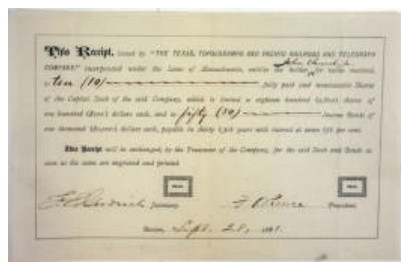 This Receipt, issued by "THE TEXAS, TOPOLOBAMPO AND PACIFIC RAILROAD AND TELEGRAPH
COMPANY," incorporated under the Laws of Massachusetts, entitles the holder, for value received,
to ten (10) fully paid and nonassessable Shares
of the Capital Stock of the said Company, which is limited to eighteen hundred shares of
one hundred dollars each, and to fifty (50) Income Bonds of
one thousand dollars each, payable in thirty years with interest at seven per cent.
This Receipt will be exchanged, by the Treasurer of the Company, for the said Stock and Bonds as
soon as the same are engraved and printed.
Secretary. President.
Boston, Sept. 28, 1881.